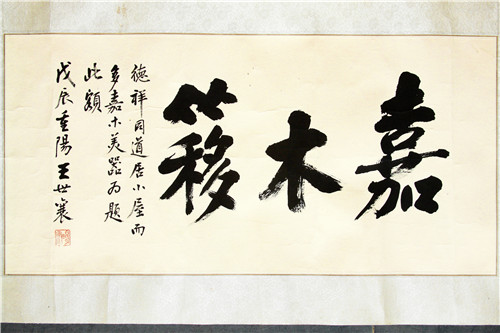 嘉木簃
德祥同道居小屋而
多嘉木美器为題
此額
戊辰重陽王世襄